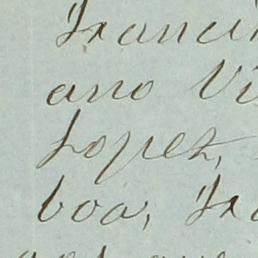 Franci
ano Vi
Lopez,
boa, Fra